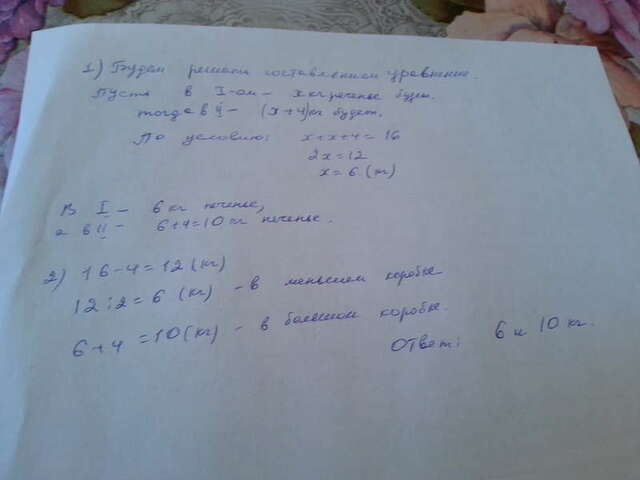 1) Будем решать составлением уравнение.
Пусть в I-ом - x кг печенье будет.
тогда в II - (x+4)кг будет.
По условию: x+x+4=16
2x=12
x=6 (кг)
В I - 6 кг печенье,
а в II - 6+4=10 кг печенье.
2) 16-4=12 (кг)
12:2=6 (кг) - в меньшем коробке
6+4=10(кг) - в большом коробке.
Ответ: 6 и 10 кг.